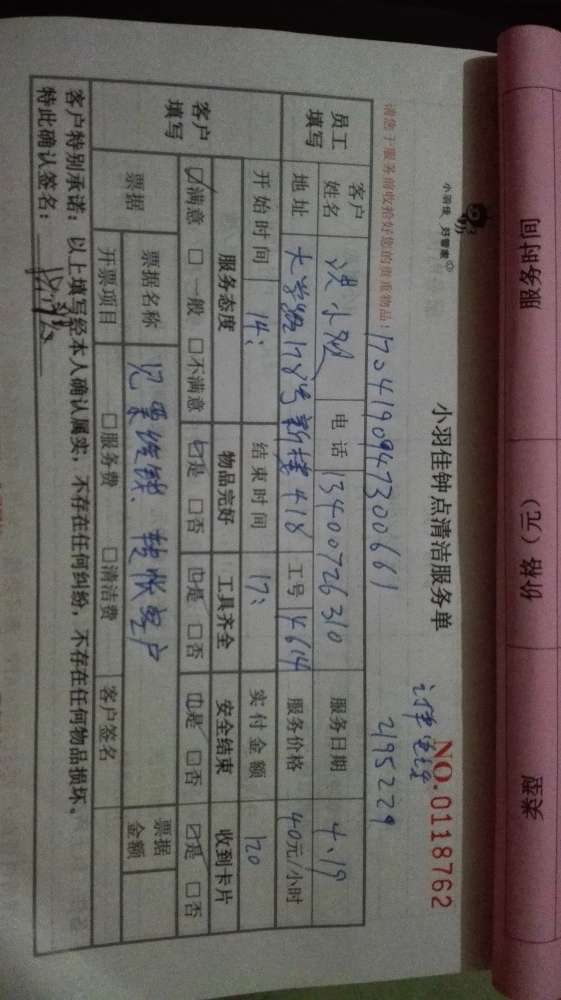 服务时间 价格（元） 类型
小羽佳 好管家
小羽佳钟点清洁服务单
NO.0118762
订单电话
2195229
请您于服务前收拾好您的贵重物品！
1704190947300661
员工填写
客户姓名 电话 13400726310 服务日期 4.19
地址 大学路178号新楼418 工号 4614 服务价格 40元/小时
客户填写
开始时间 14: 结束时间 17: 实付金额 120
服务态度 物品完好 工具齐全 安全结束 收到卡片
☑满意 □一般 □不满意 ☑是 □否 ☑是 □否 ☑是 □否 ☑是 □否
票据 票据名称 票据金额
开票项目 □服务费 □清洁费 客户签名
客户特别承诺：以上填写经本人确认属实，不存在任何纠纷，不存在任何物品损坏。
特此确认签名：